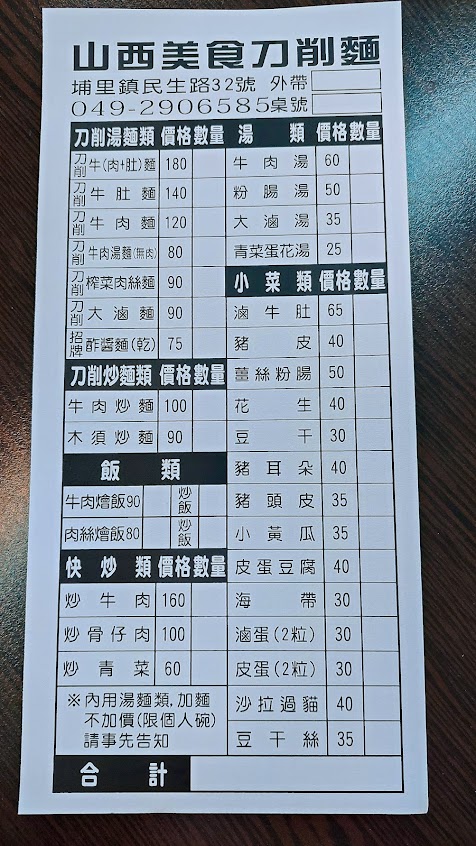 山西美食刀削麵
埔里鎮民生路32號 外帶
049-2906585 桌號
刀削湯麵類 價格 數量
刀削 牛(肉+肚)麵 180
刀削 牛肚麵 140
刀削 牛肉麵 120
刀削 牛肉湯麵(無肉) 80
刀削 榨菜肉絲麵 90
刀削 大滷麵 90
招牌 酢醬麵(乾) 75
刀削炒麵類 價格 數量
牛肉炒麵 100
木須炒麵 90
飯類
牛肉燴飯90 炒飯
肉絲燴飯80 炒飯
快炒類 價格 數量
炒牛肉 160
炒骨仔肉 100
炒青菜 60
※內用湯麵類,加麵
不加價(限個人碗)
請事先告知
湯類 價格 數量
牛肉湯 60
粉腸湯 50
大滷湯 35
青菜蛋花湯 25
小菜類 價格 數量
滷牛肚 65
豬皮 40
薑絲粉腸 50
花生 40
豆干 30
豬耳朵 40
豬頭皮 35
小黃瓜 35
皮蛋豆腐 40
海帶 30
滷蛋(2粒) 30
皮蛋(2粒) 30
沙拉過貓 40
豆干絲 35
合計